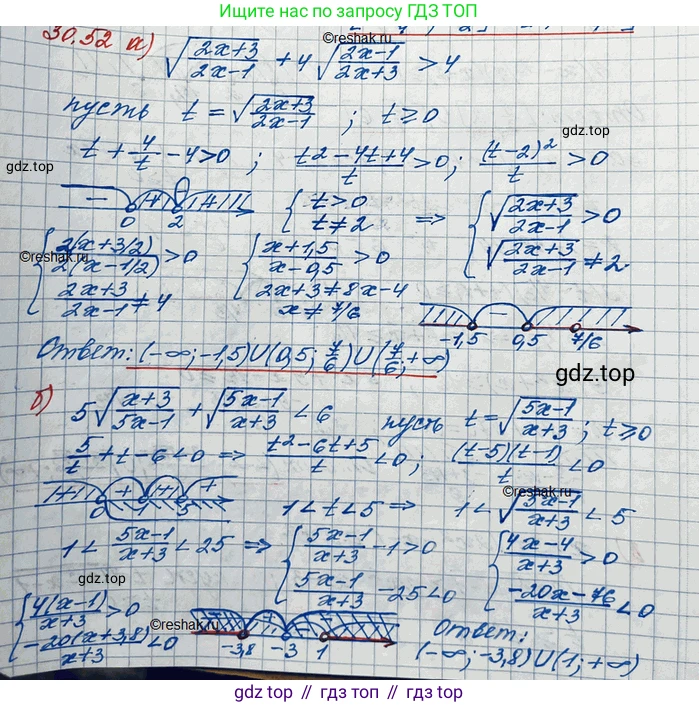 Ищет нас по запросу ГДЗ ТОП
30.52 а) √((2x+3)/(2x-1)) + 4√((2x-1)/(2x+3)) > 4
©reshak.ru
пусть t = √((2x+3)/(2x-1)) ; t ≥ 0
gdz.top
t + 4/t - 4 > 0 ; (t² - 4t + 4)/t > 0 ; (t-2)²/t > 0
gdz.top
- + + 0 2 { t > 0 t ≠ 2 ⇒ { √((2x+3)/(2x-1)) > 0 √((2x+3)/(2x-1)) ≠ 2
©reshak.ru
{ 2(x+3/2)/2(x-1/2) > 0 (2x+3)/(2x-1) ≠ 4 { (x+1,5)/(x-0,5) > 0 2x+3 ≠ 8x-4
x ≠ 7/6
- -1,5 0,5 7/6
Ответ: (-∞; -1,5) ∪ (0,5; 7/6) ∪ (7/6; +∞)
gdz.top
б) 5√((x+3)/(5x-1)) + √((5x-1)/(x+3)) < 6 пусть t = √((5x-1)/(x+3)) ; t ≥ 0
5/t + t - 6 < 0 ⇒ (t² - 6t + 5)/t < 0 ; (t-5)(t-1)/t < 0
©reshak.ru
1 < t < 5 ⇒ 1 < √((5x-1)/(x+3)) < 5
1 < (5x-1)/(x+3) < 25 ⇒ { (5x-1)/(x+3) - 1 > 0 (5x-1)/(x+3) - 25 < 0 { (4x-4)/(x+3) > 0 (-20x-76)/(x+3) < 0
gdz.top
{ 4(x-1)/(x+3) > 0 -20(x+3,8)/(x+3) < 0
©reshak.ru
-3,8 -3 1
Ответ:
(-∞; -3,8) ∪ (1; +∞)
gdz.top
gdz top // гдз топ // gdz.top